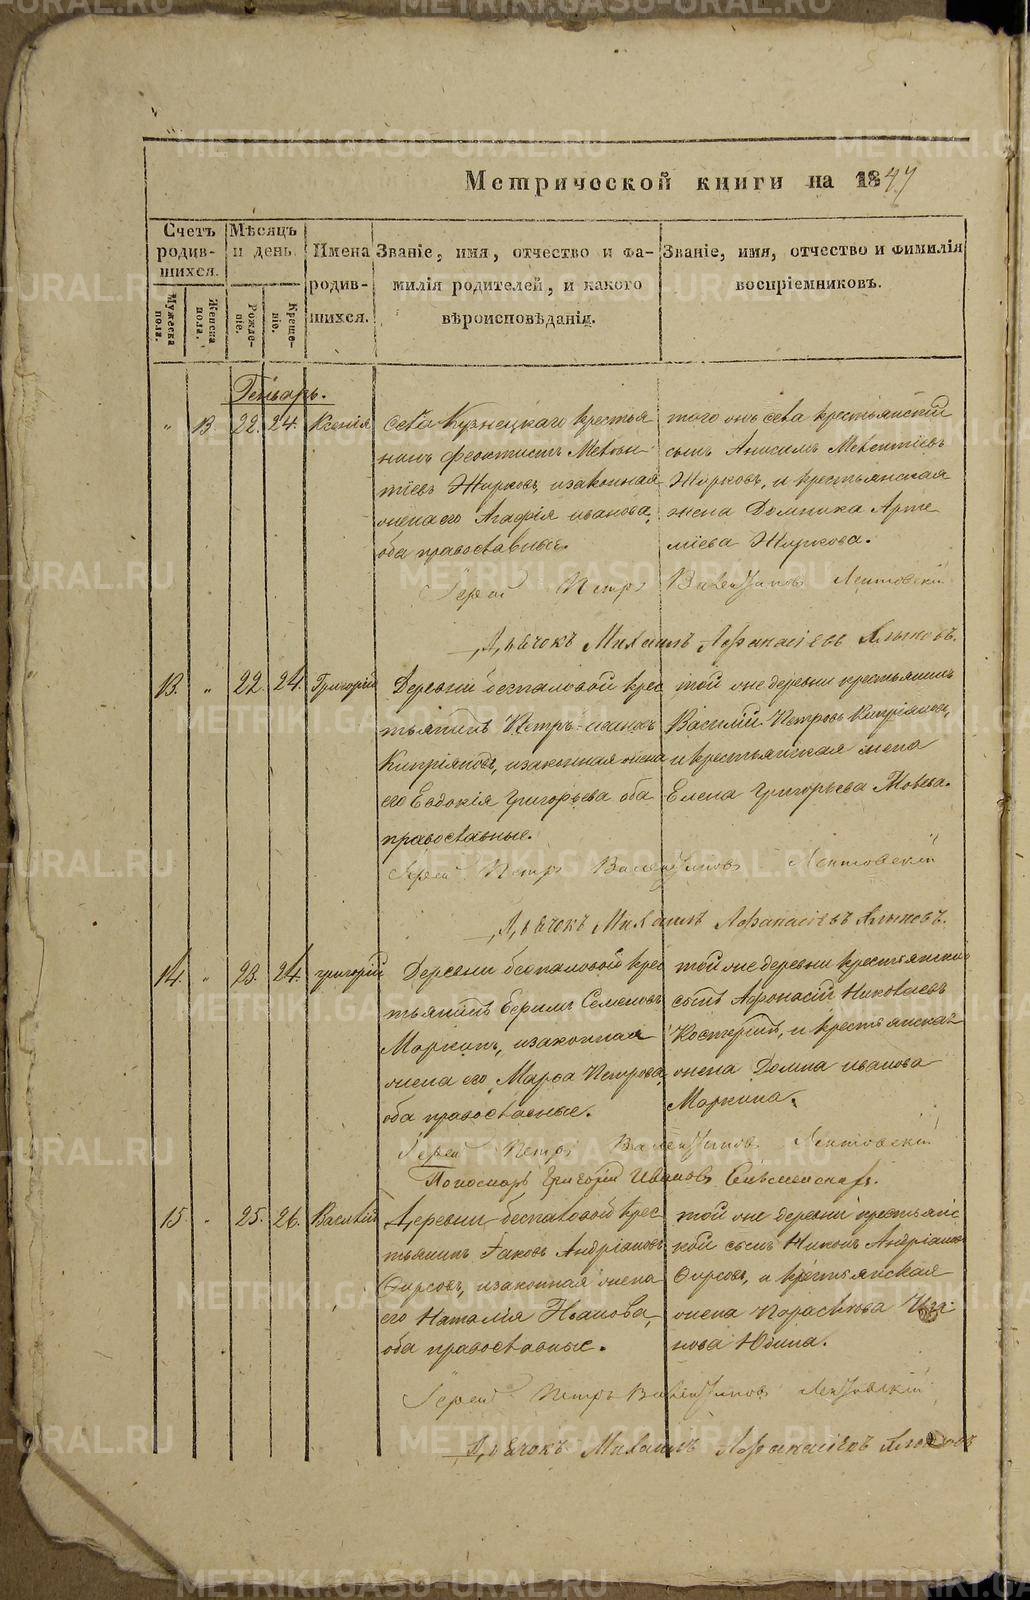 METRIKI.GASO-URAL.RU
Метрической книги на 1847
Счетъ родив-шихся.
Мужеска пола.
Женска пола.
Мѣсяцъ и день.
Рожде-ніе.
Креще-ніе.
Имена родив-шихся.
Званіе, имя, отчество и фа-милія родителей, и какого вѣроисповѣданія.
Званіе, имя, отчество и фимилія воспріемниковъ.
Генварь.
" 13 22. 24. Ксенія
села Кузнецкаго крестья
нинъ Феоктистъ
тіевъ Жирковъ, и законная
жена его Агафія иванова,
оба православные.
того жъ села крестьянскій
сынъ Анисимъ
Жирковъ, и крестьянская
жена Домника Арте
міева Жиркова.
Іерей Петръ Лентовскій
Дьячокъ Михаилъ Афанасіевъ
13. " 22. 24. Григорій
Деревни беспаловой крес
тьянинъ Петръ ивановъ
Кипріяновъ, и законная жена
его Евдокія григорьева оба
православные.
той же деревни крестьянинъ
Василій Петровъ Кипріяновъ,
и крестьянская жена
Елена григорьева
Іерей Петръ Лентовскій
Дьячокъ Михаилъ Афанасіевъ
14. " 23. 24. григорій
Деревни беспаловой крес
тьянинъ Семеновъ
Маркинъ, и законная
жена его Марфа Петрова,
оба православные.
той же деревни крестьянскій
сынъ Афонасій Николаевъ
Костеринъ, и крестьянская
жена Домна иванова
Маркина.
Іерей Петръ Лентовскій
Пономарь Григорій Ивановъ
15 " 25. 26. Василій
Деревни беспаловой крес
тьянинъ Іаковъ Андріановъ
Фирсовъ, и законная жена
его Наталія Иванова,
оба православные.
той же деревни крестьянс
кой сынъ Никонъ Андріановъ
Фирсовъ, и крестьянская
жена Парасковья Ива
нова Юдина.
Іерей Петръ Лентовскій
Дьячокъ Михаилъ Афанасіевъ